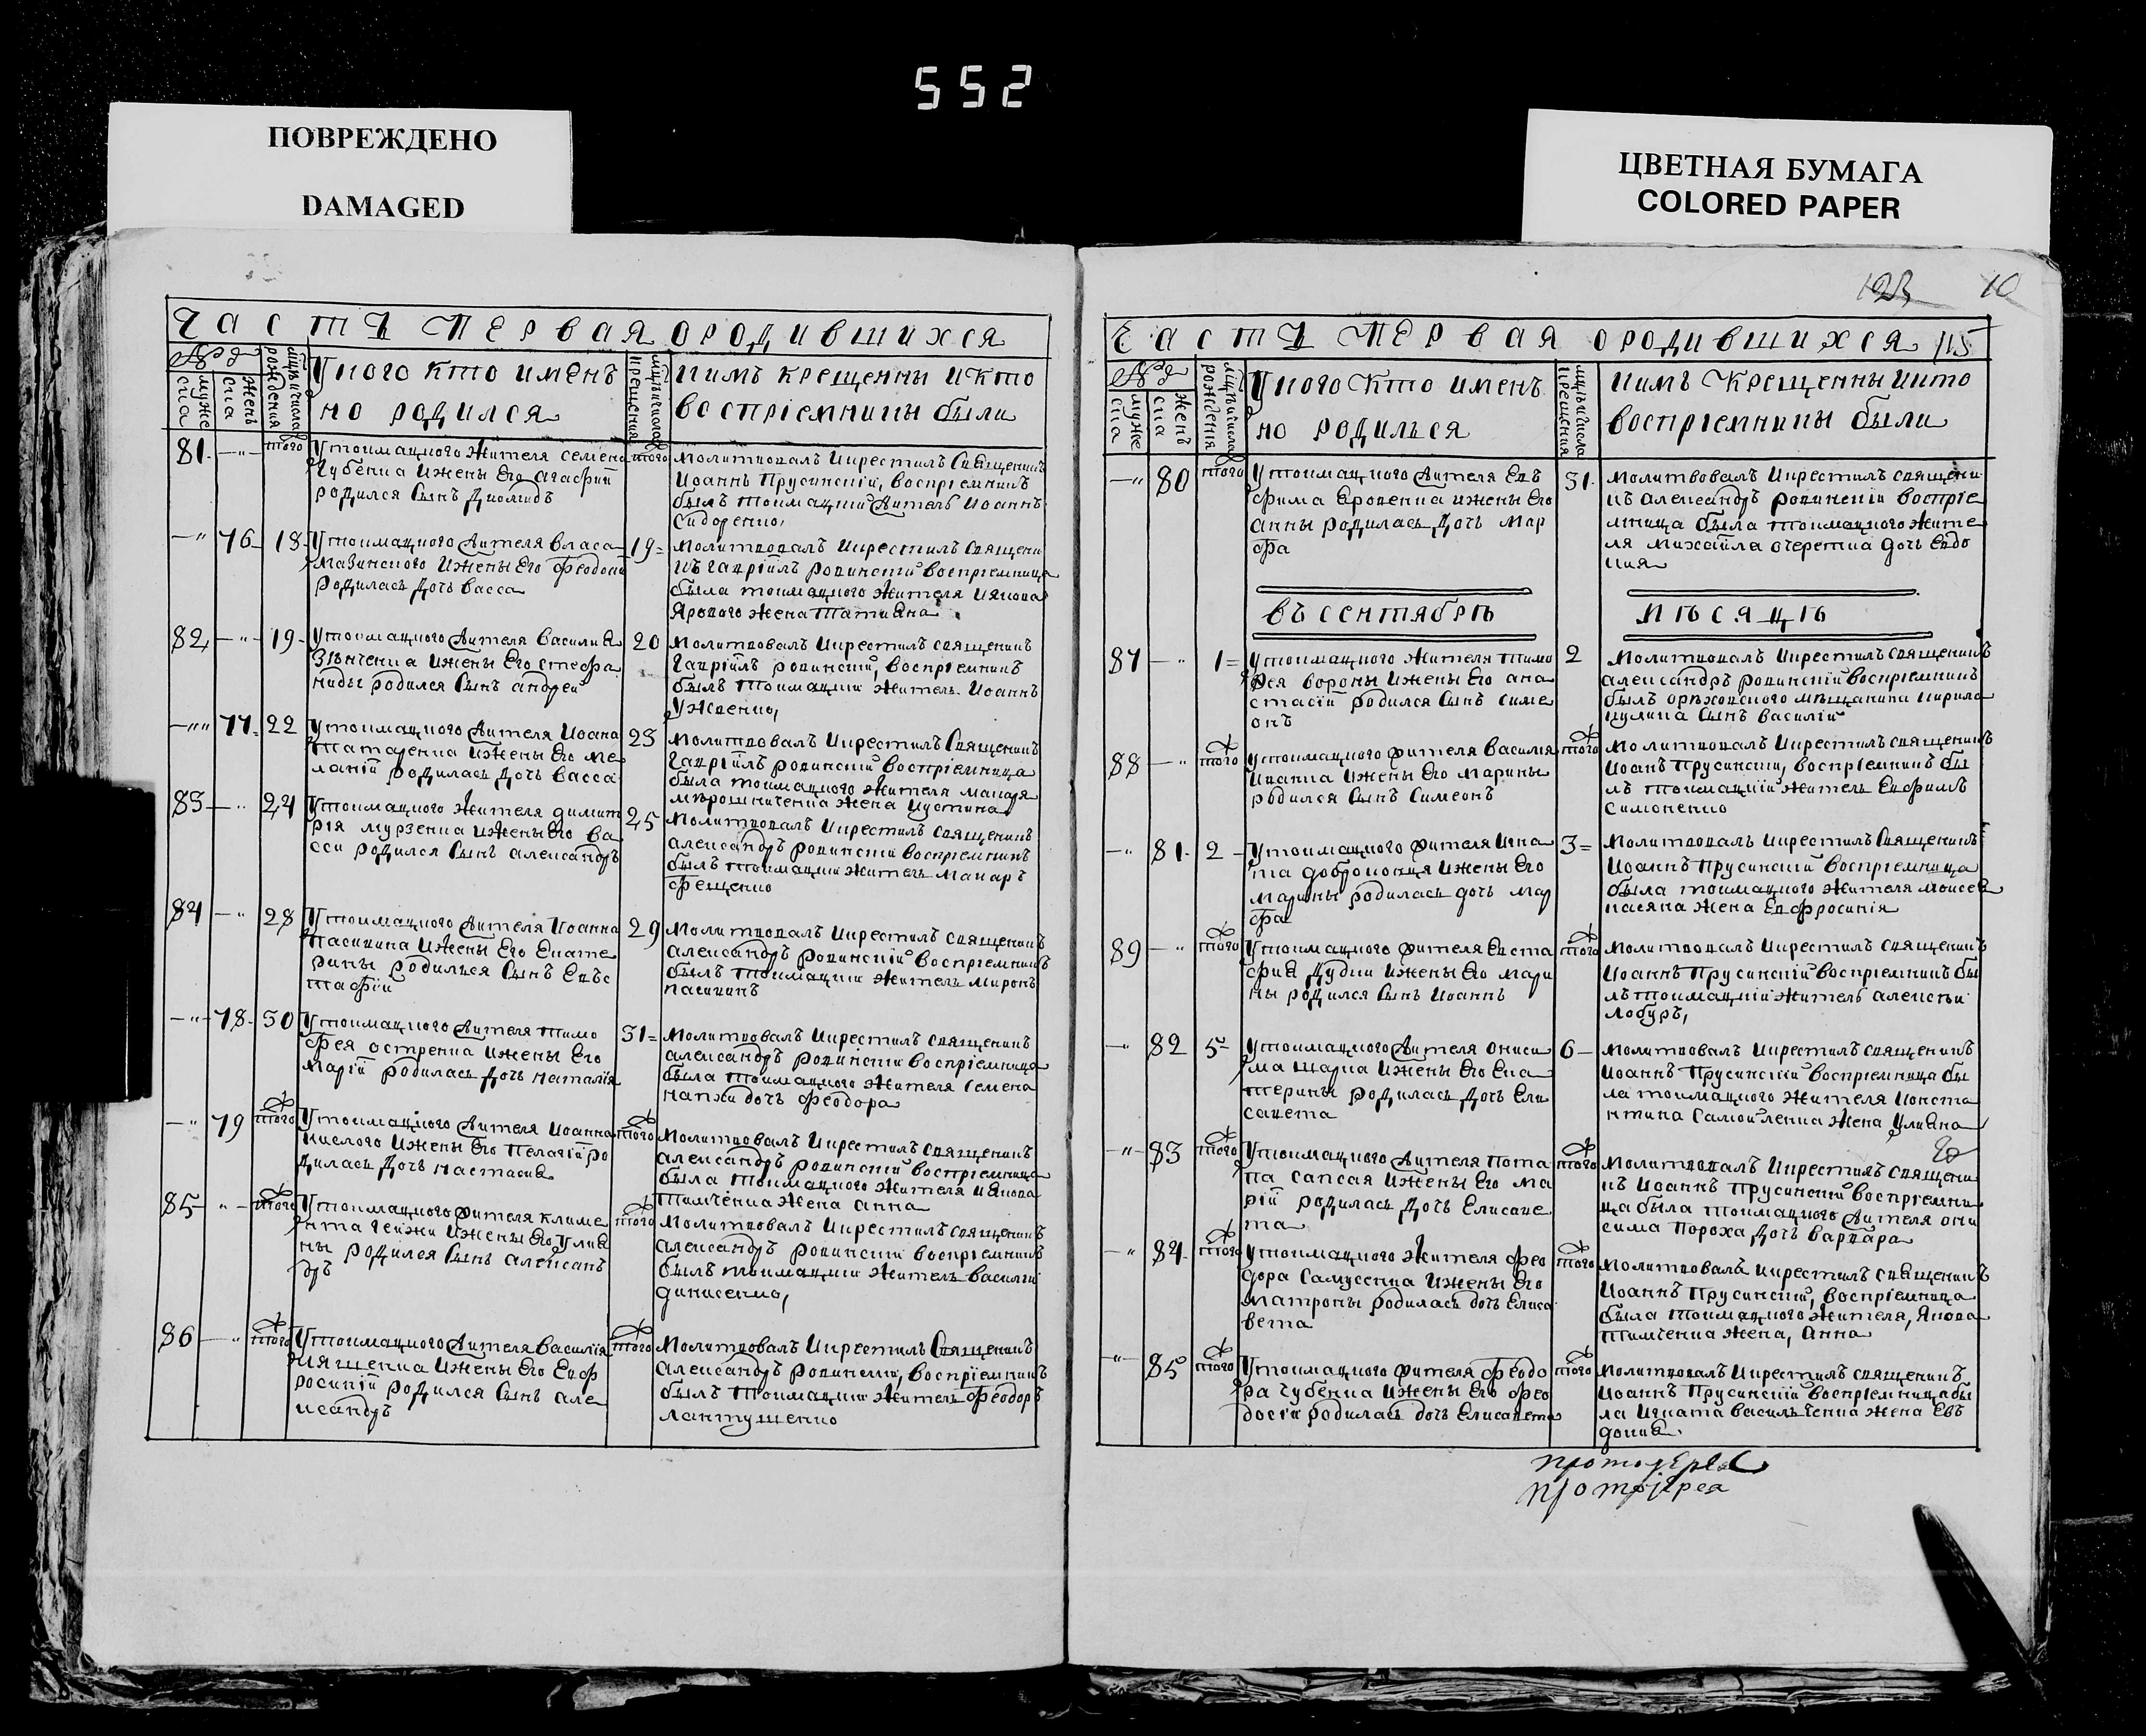 552
ПОВРЕЖДЕНО
DAMAGED
ЦВЕТНАЯ БУМАГА
COLORED PAPER
Часть первая ородившихся
муже
ска
женъ
ска
рождения
Укого кто имѣнъ
но родился
крещения
кимъ крещенны икто
воспрiемники были
81 того того
Утокмацкого жителя семена
губенка ижены Его агафiи
родился сынъ диомидъ
Молитвовалъ икрестилъ священникъ
Иоаннъ Прусинскiй, воспрiемникъ
былъ токмацкiй житель Иоаннъ
Сидоренко,
76 18 19
Утокмацкого жителя власа
Мазинского ижены Его феодоси
родилась дочь васса
Молитвовалъ икрестилъ священи
къ гаврiилъ ровинскiй воспрiемница
была токмацкого жителя иякова
Ярового жена татияна
82 19 20
Утокмацкого жителя василия
Зѣнченка ижены Его стефа
ниды родился сынъ андрей
Молитвовалъ икрестилъ священникъ
гаврiилъ ровинскiй, воспрiемникъ
былъ токмацкiй житель Иоаннъ
Ужвенко,
77 22 23
Утокмацкого жителя Иоана
татаренка ижены Его ме
ланiи родилась дочь васса
Молитвовалъ икрестилъ священникъ
гаврiилъ ровинскiй воспрiемница
была токмацкого жителя макаря
мѣрошниченка жена иустина
83 24 25
Утокмацкого жителя димит
рiя мурзенка ижены Его ва
сси родился сынъ александръ
Молитвовалъ икрестилъ священникъ
александръ ровинскiй воспрiемникъ
былъ токмацкiй житель макаръ
фещенко
84 28 29
Утокмацкого жителя Иоанна
пасикина ижены Его Екате
рины родилъся сынъ Евъс
тафiй
Молитвовалъ икрестилъ священникъ
александръ ровинскiй воспрiемникъ
былъ токмацкiй житель миронъ
пасикинъ
78 30 31
Утокмацкого жителя тимо
фея остренка ижены Его
Марiи родилась дочь наталiя
Молитвовалъ икрестилъ священникъ
александръ ровинскiй воспрiемница
была токмацкого жителя семена
дочь феодора
79 того того
Утокмацкого жителя Иоанна
кислого ижены Его пелагiи ро
дилась дочь настасия
Молитвовалъ икрестилъ священникъ
александръ ровинскiй воспрiемница
была токмацкого жителя иякова
тимченка жена анна
85 того того
Утокмацкого жителя климе
нта гейжи ижены Его улия
ны родился сынъ алексанъ
дръ
Молитвовалъ икрестилъ священникъ
александръ ровинскiй воспрiемникъ
былъ токмацкiй житель василiй
динисенко,
86 того того
Утокмацкого жителя василiя
ижены Его Евф
росинiи родился сынъ але
ксандръ
Молитвовалъ икрестилъ священникъ
александръ ровинскiй, воспрiемникъ
былъ токмацкiй житель феодоръ
лантушенко
10
Часть первая ородившихся 115
муже
ска
женъ
ска
рождения
Укого кто имѣнъ
но родилъся
крещения
кимъ крещенны икто
воспрiемники были
80 того 31
Утокмацкого жителя Евъ
фима яровенка ижены Его
анны родилась дочь мар
фа
Молитвовалъ икрестилъ священи
къ александръ ровинскiй воспрiе
мница была токмацкого жите
ля михаила очеретка дочь Евдо
кия
въ сентябрѣ мѣсяцѣ
87 1 2
Утокмацкого жителя тимо
фея вороны ижены Его ана
стасiи родился сынъ симе
онъ
Молитвовалъ икрестилъ священникъ
александръ ровинскiй воспрiемникъ
былъ орѣховского мѣщанина кирила
кулика сынъ василiй
88 того того
Утокмацкого жителя василия
ижены Его марины
родился сынъ симеонъ
Молитвовалъ икрестилъ священникъ
Иоанъ Прусинскiй, воспрiемникъ бы
лъ токмацкiй житель Евфимъ
симоненко
81 2 3
Утокмацкого жителя игна
та ижены Его
марины родилась дочь мар
фа
Молитвовалъ икрестилъ священникъ
Иоаннъ Прусинскiй воспрiемница
была токмацкого жителя моисея
жена Евфросинiя
89 того того
Утокмацкого жителя Евста
фия дубки ижены Его мари
ны родился сынъ Иоаннъ
Молитвовалъ икрестилъ священникъ
Иоаннъ Прусинскiй воспрiемникъ бы
лъ токмацкiй житель алексѣй
лобуръ,
82 5 6
Утокмацкого жителя ониси
ма шарка ижены Его Ека
терины родилась дочь Ели
савета
Молитвовалъ икрестилъ священникъ
Иоаннъ Прусинскiй воспрiемница бы
ла токмацкого жителя конста
нтина самойленка жена улияна
83 того того
Утокмацкого жителя пота
па сапсая ижены Его ма
рiи родилась дочь Елисаве
та
Молитвовалъ икрестилъ священи
къ Иоаннъ Прусинскiй воспрiемни
ца была токмацкого жителя они
сима пороха дочь варвара
84 того того
Утокмацкого жителя фео
дора самусенка ижены Его
матроны родилась дочь Елиса
вета
Молитвовалъ икрестилъ священникъ
Иоаннъ Прусинскiй, воспрiемница
была токмацкого жителя, якова
тимченка жена, анна
85 того того
Утокмацкого жителя феодо
ра губенка ижены Его фео
досiи родилась дочь Елисавета
Молитвовалъ икрестилъ священникъ
Иоаннъ Прусинскiй воспрiемница бы
ла игната василъченка жена Евъ
докия.
протоiерея